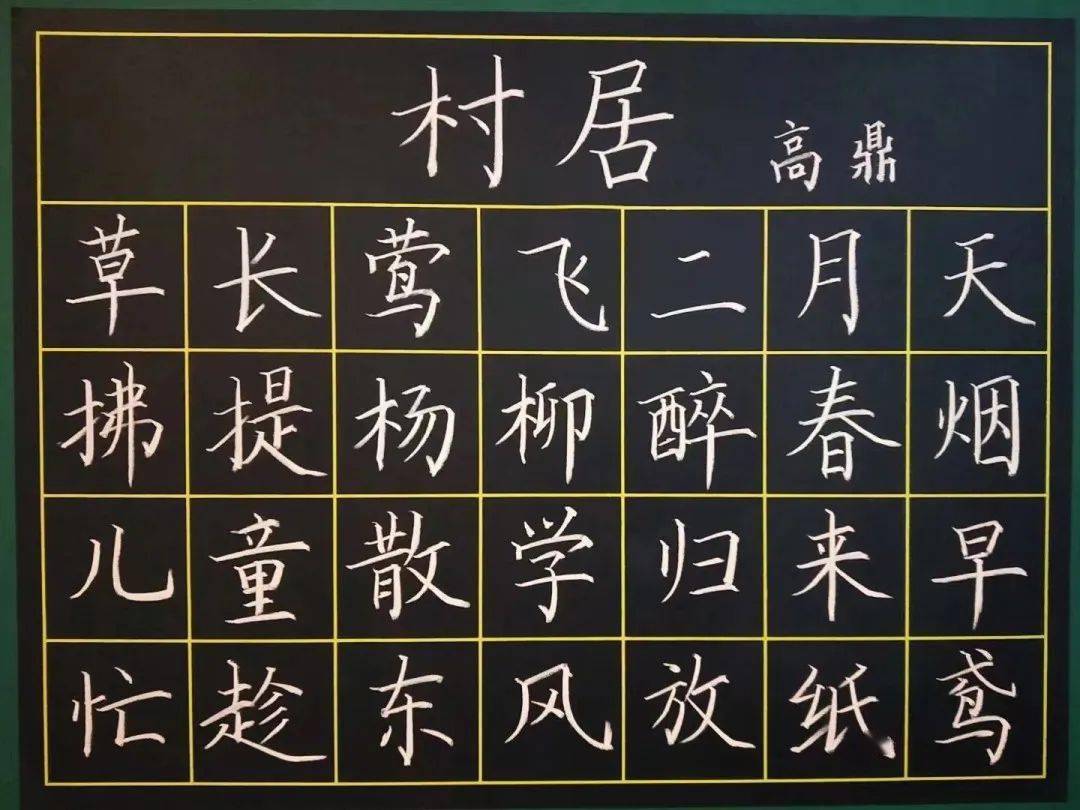 村居 高鼎
草长莺飞二月天
拂提杨柳醉春烟
儿童散学归来早
忙趁东风放纸鸢